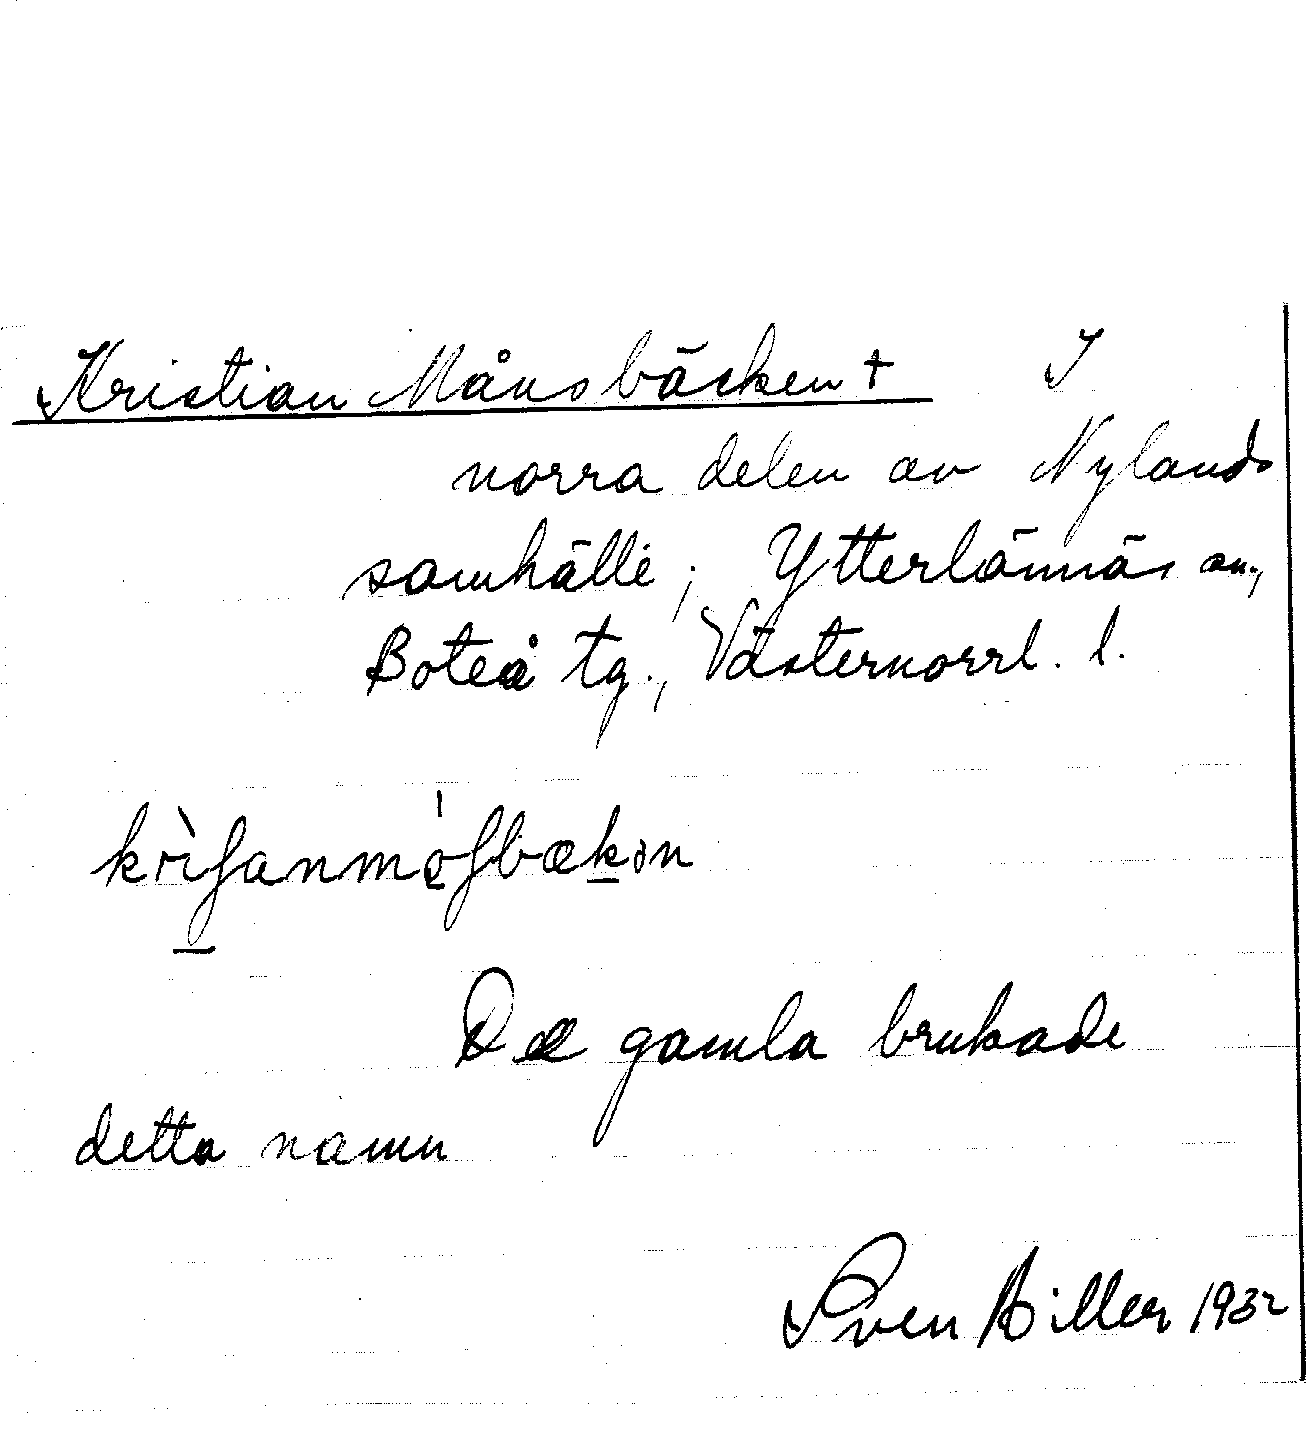 Kristian Månsbäcken + I
norra delen av Nylands
samhälle, Ytterlännäs sn.,
Boteå tg., Västernorrl. l.
De gamla brukade
detta namn
Sven Hiller 1932